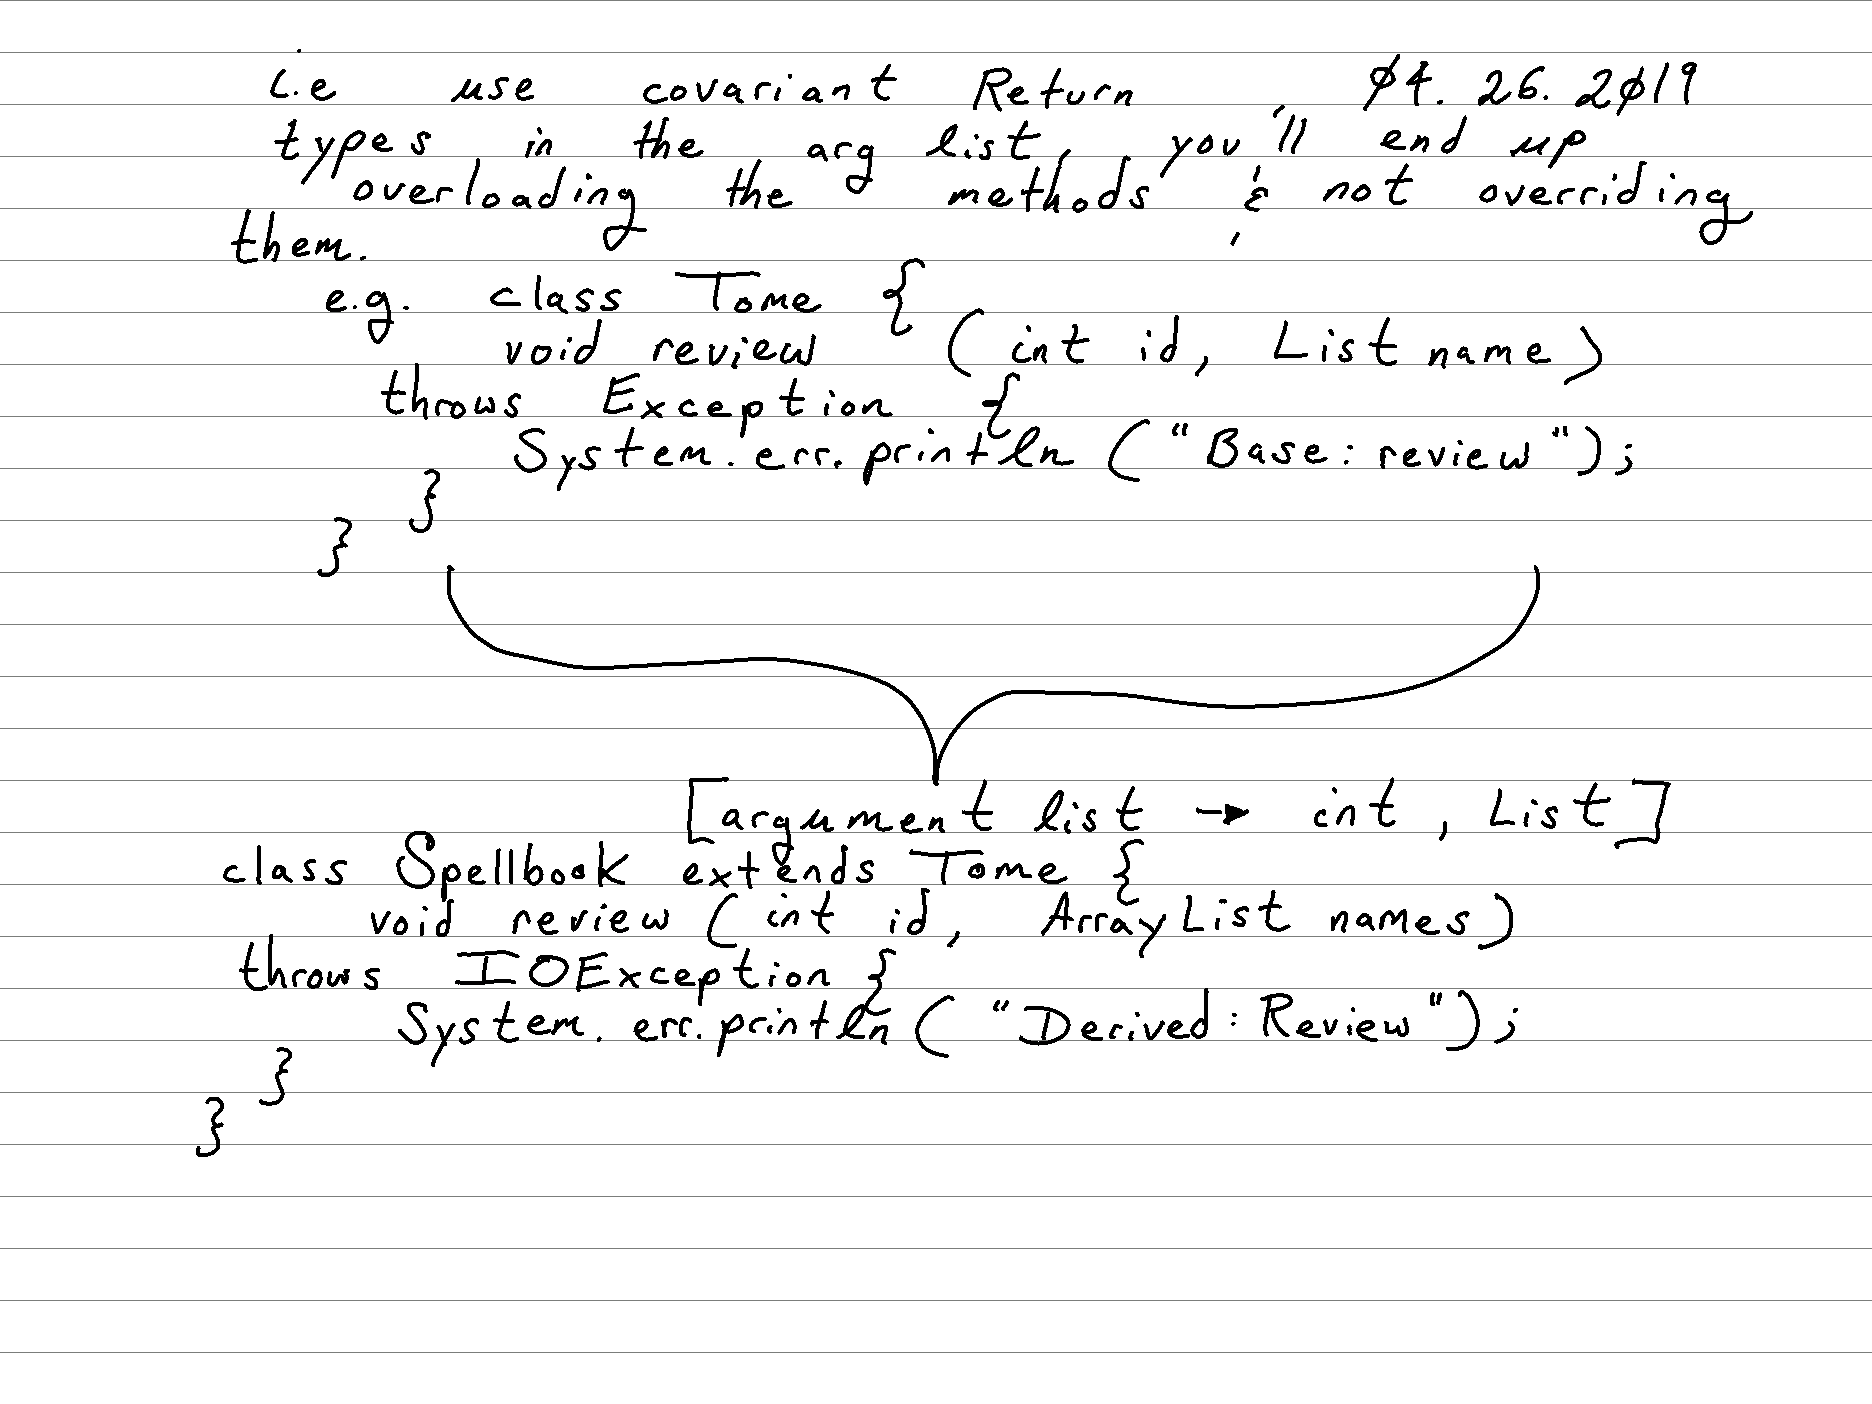 i.e use covariant Return 04.26.2019
types in the arg list, you'll end up
overloading the methods & not overriding
them.
e.g. class Tome {
void review (int id, List name)
throws Exception {
System.err.println ("Base: review");
}
}
[argument list → int, List]
class Spellbook extends Tome {
void review (int id, ArrayList names)
throws IOException {
System.err.println ("Derived: Review");
}
}